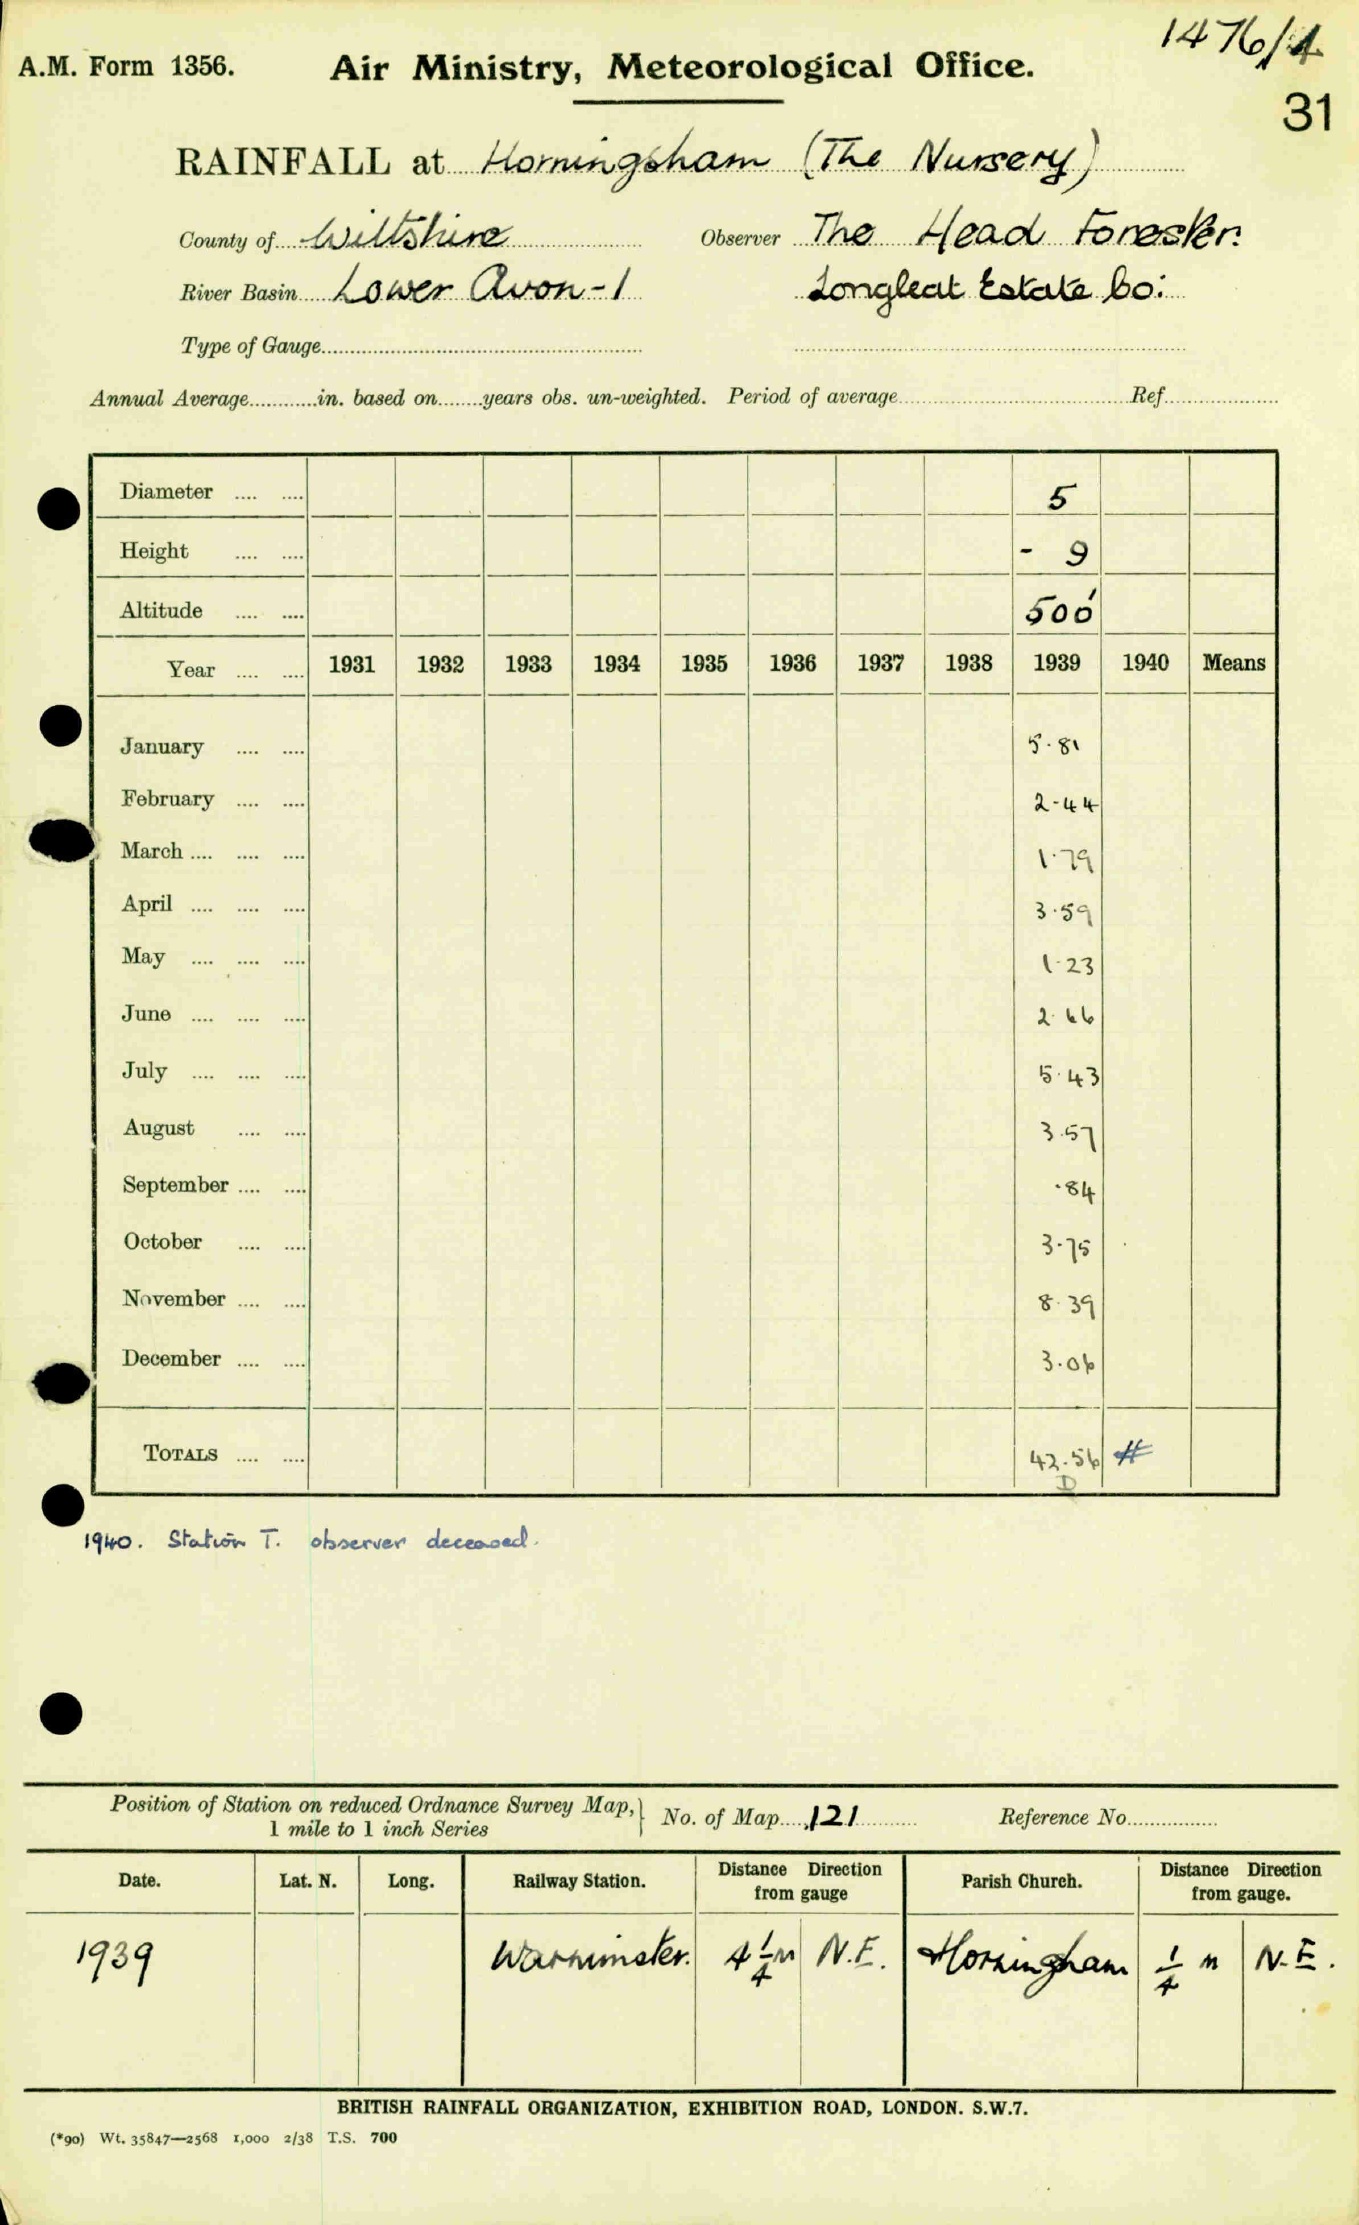 1476/1
A.M. Form 1356. Air Ministry, Meteorological Office.
31
RAINFALL at Horningsham (The Nursery)
County of Wiltshire Observer The Head Forester.
River Basin Lower Avon-1 Longleat Estate Co:
Type of Gauge
Annual Average in. based on years obs. un-weighted. Period of average Ref
Diameter 5
Height - 9
Altitude 500'
Year 1931 1932 1933 1934 1935 1936 1937 1938 1939 1940 Means
January 5.81
February 2.44
March 1.79
April 3.59
May 1.23
June 2.66
July 5.43
August 3.57
September .84
October 3.75
November 8.39
December 3.06
TOTALS 42.56 #
D
1940. Station T. observer deceased.
Position of Station on reduced Ordnance Survey Map, } No. of Map 121 Reference No.
1 mile to 1 inch Series
Date. Lat. N. Long. Railway Station. Distance Direction from gauge Parish Church. Distance Direction from gauge.
1939 Warminster. 4 1/4 m N.E. Horningham 1/4 m N.E.
BRITISH RAINFALL ORGANIZATION, EXHIBITION ROAD, LONDON. S.W.7.
(*90) Wt. 35847—2568 1,000 2/38 T.S. 700